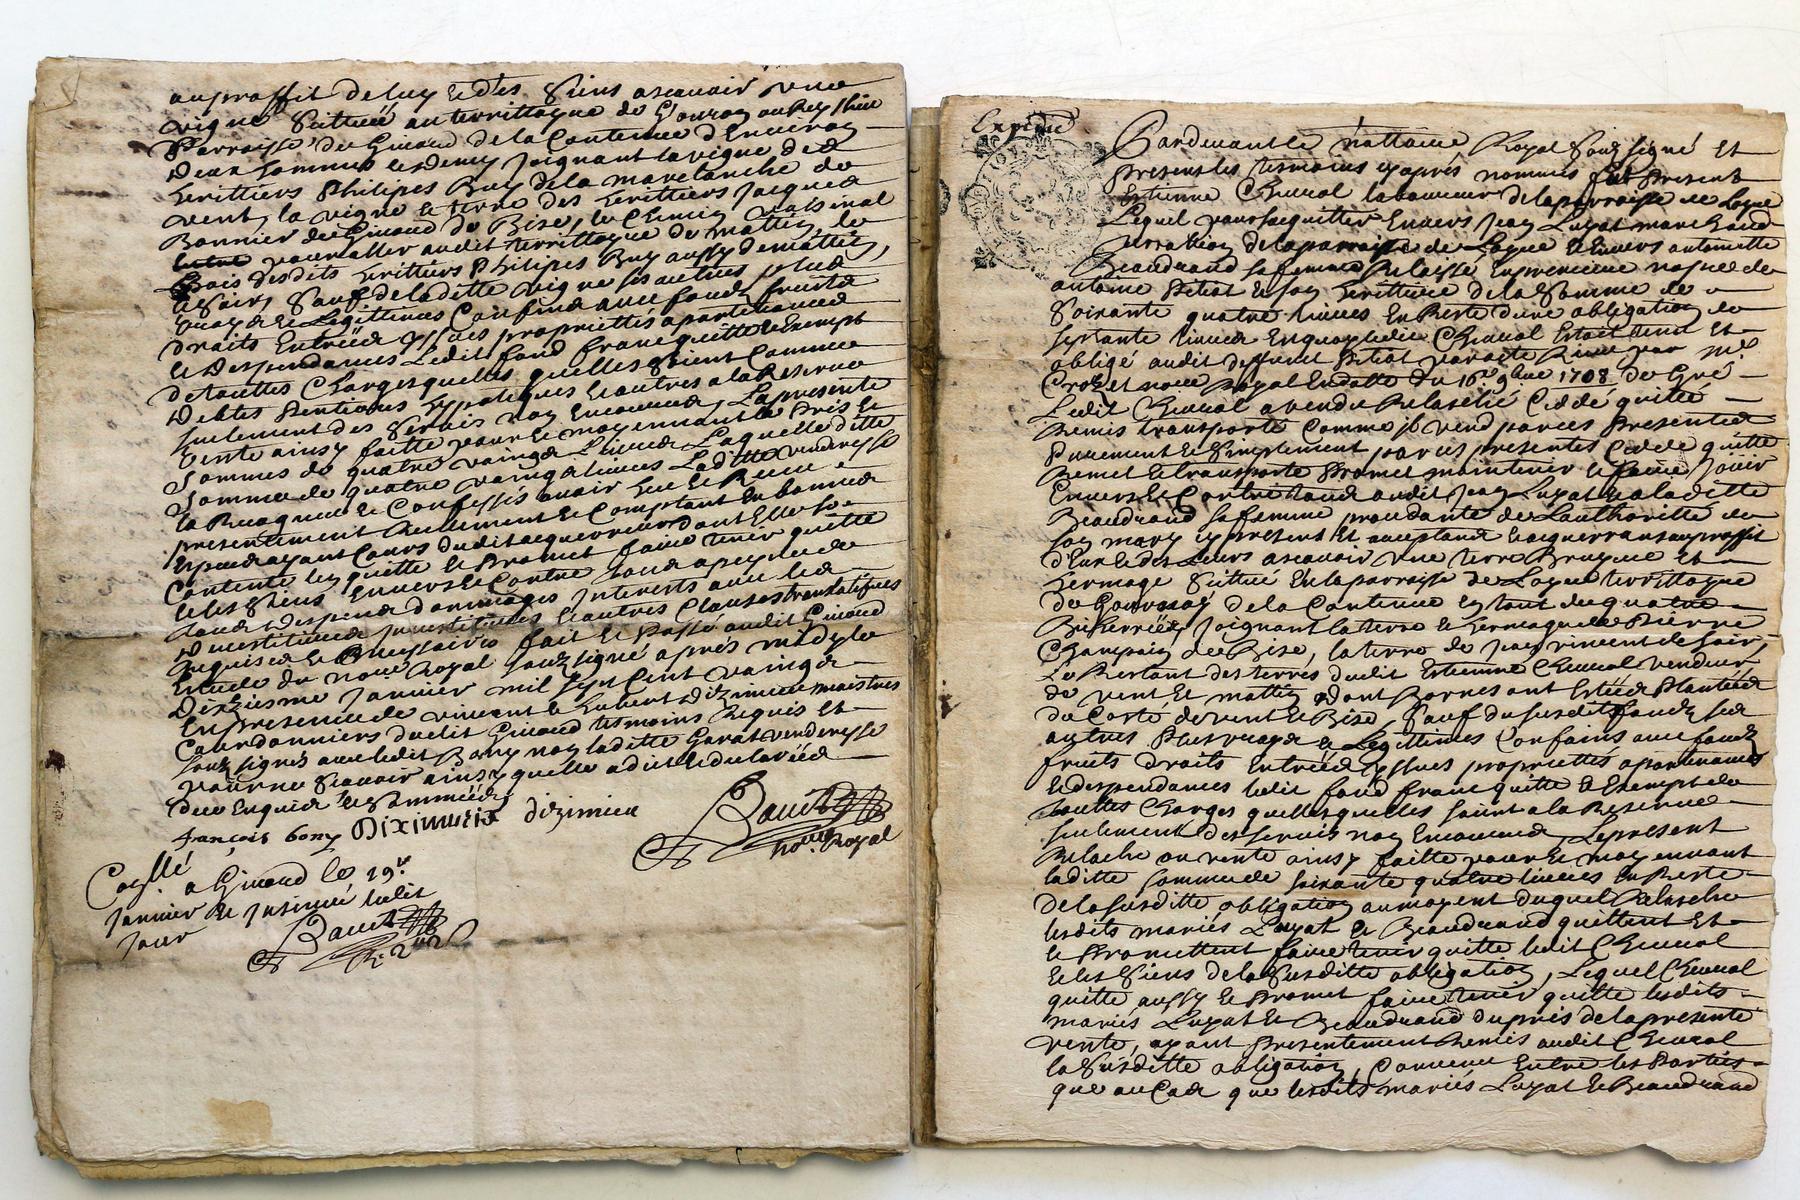 au proffit de luy et des siens ascavoir une
vigne scittuée au territtoyre de
Parroisse de Giraud de la Contenue d'Environ
deux hommes et demy joignant la vigne des
herittiers Philipes Buy de la marelanche de
vent, la vigne et terre des herittiers Jacques
Bonnier de Giraud de Bize, le Chemin
pour aller audit territtoyre de mattin, le
Bois desdits herittiers Philipes Buy aussy de mattin,
et soir, sauf de laditte vigne ses autres plus
vrays et Legittimes Confins avec fondz, fruits
droits Entrées yssues propriettés apartenances
et Despendances Ledit fond franc quitte et Exempt
de touttes Charges quelles quelles soient Comme
debtes Pentions ypotiques et autres a la Reserve
seulement des servis non Encourus, La presente
vente ainsy faitte pour et moyennant le Pris et
somme de quatre vaingt Livres Laquelle ditte
somme de quatre vaingt livres Laditte venderesse
la Recogneu et Confessés avoir heu et Receu
presentement Reellement et Comptant En bonnes
Especes ayant Cours dudit acquerreur dont Elle se
Contente les quitte et Promet faire tenir quitte
et les siens Envers et Contre tous a peyne de
tous despens dommages Interests avec les
autres Clauses translatifves
Requises et Necessaires fait et Passé audit Giraud
Estude du no.re Royal soubsigné aprés midy le
Dixiesme Janvier mil sept cent vaingt
En presence de vincent et hubert Diximieu maistres
Cordonniers dudit Giraud tesmoins Requis et
soub signés avec ledit Bony non laditte Garat venderesse
pour ne scavoir ainsy quelle a dit et declarée
de ce Enquise et sommée
françois bony Diximieu diximieu
no.re Royal
Collé
a Giraud le 19.e
Janvier et Insinué ledit
Jour
Expedié
Pardevant le nottaire Royal soub signé Et
presents les tesmoins cy aprés nommés fut Present
Estienne Cheucal laboureur de la parroisse de Loyre
Lequel pour sacquitter Envers Jean Luyat marchand
de la parroisse de Loyre et Envers antoinette
Beaudrand sa femme Relaissé En premiere nopces de
antoine Pitiot Et son herittiere de la somme de
Soixante quatre livres En Reste d'une obligation de
septante livres En quoy ledit Cheucal Estoit tenu Et
obligé audit deffunt Pitiot par acte Receu par M.e
Crozet no.re Royal En datte du 16.e 9.bre 1708 de Gré
Ledit Cheucal a vendu Relasché Ceddé quitté
Remis transporté Comme Il vend par ces Presentes
Purement et Simplement par ces presentes Cedde quitte
Remet et transporte Promet maintenir et faire Jouir
Envers et Contre tous audit Jean Luyat et a laditte
Beaudrand sa femme procedante de Lauthoritté de
son mary cy present Et acceptant Et acquerrans au proffit
d'Eux et des Leurs ascavoir une terre Bruyere Et
hermage scittué En la parroisse de Loyre territtoyre
de de la Contenue En tout de quatre
Bicherrées, joignant la terre et hermage de Pierre
Champain de Bize, la terre de Jean vincent de soir,
Le Restant des terres dudit Estienne Cheucal vendeur
de vent Et mattin dont Bornes ont Estées Plantées
du Costé de vent et Bize, sauf du susdit fondz ses
autres Plus vrays et Legittimes Confains avec fondz
fruits droits Entrées yssues propriettés apartenances
et despendances ledit fond franc quitte et Exempt de
touttes Charges quelles quelles soint a la Reserve
seulement des servis non Encourus, Le present
Relache ou vente ainsy faitte pour et moyennant
laditte somme de soixante quatre livres En Reste
de la susditte obligation au moyent duquel Relasche
lesdits mariés Luyat et Beaudrand quittent Et
et Promettent faire tenir quitte ledit Cheucal
et les siens de la susditte obligation, Lequel Cheucal
quitte aussy et Promet faire tenir quitte lesdits
mariés Luyat Et Beaudrand du pris de la presente
vente, ayant presentement Remis audit Cheucal
la susditte obligation, Convenu Entre les Parties
que au Cas que lesdits mariés Luyat et Beaudrand